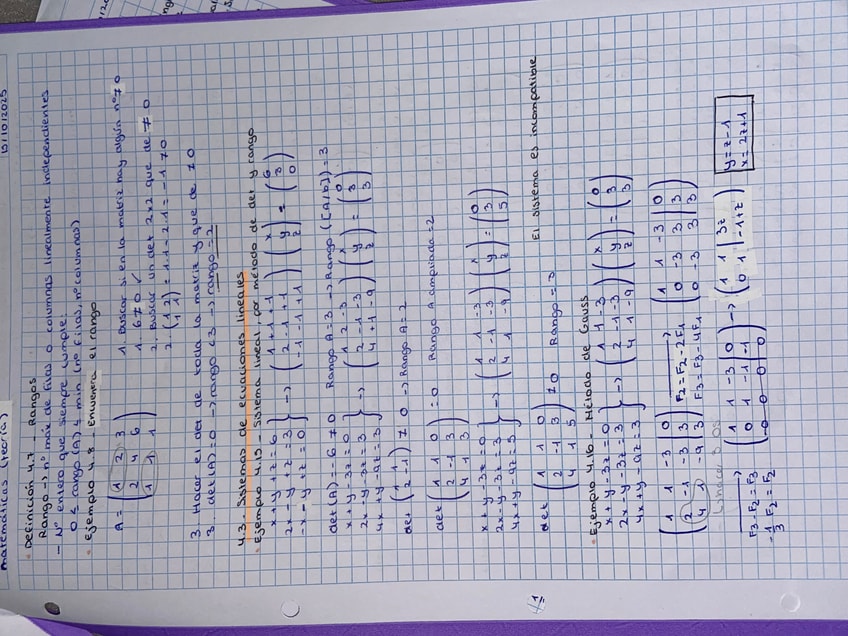 Matemáticas (teoría) 15/10/2025
· Definición 4.7 - Rangos
Rango -> nº máx de filas o columnas linealmente independientes
- Nº entero que siempre cumple:
0 ≤ rango (A) ≤ min (nº filas, nº columnas)
· Ejemplo 4.8 - Encuentra el rango
A = ( 1 2 3 / 2 4 6 / 1 1 1 )
1. Buscar si en la matriz hay algún nº ≠ 0
1. 6 ≠ 0 ✓
2. Buscar un det 2x2 que de ≠ 0
2. ( 1 2 / 1 1 ) = 1·1 - 2·1 = -1 ≠ 0
3. Hacer el det de toda la matriz y que de ≠ 0
3. det (A) = 0 -> rango < 3 -> rango = 2
4.3 - Sistemas de ecuaciones lineales
· Ejemplo 4.15 - Sistema lineal por método de det y rango
x + y + z = 6
2x - y + z = 3
-x - y + z = 0
} -> ( 1 +1 +1 / 2 -1 +1 / -1 -1 +1 ) ( x / y / z ) = ( 6 / 3 / 0 )
det (A) = -6 ≠ 0 Rango A = 3 -> Rango ([A/b]) = 3
x + y - 3z = 0
2x - y - 3z = 3
4x + y - 9z = 3
} -> ( 1 2 -3 / 2 -1 -3 / 4 +1 -9 ) ( x / y / z ) = ( 0 / 3 / 3 )
det ( 1 1 / 2 -1 ) ≠ 0 -> Rango A = 2
det ( 1 1 0 / 2 -1 3 / 4 1 3 ) = 0 Rango A ampliada = 2
x + y - 3z = 0
2x - y - 3z = 3
4x + y - 9z = 5
} -> ( 1 1 -3 / 2 -1 -3 / 4 1 -9 ) ( x / y / z ) = ( 0 / 3 / 5 )
det ( 1 1 0 / 2 -1 3 / 4 1 5 ) ≠ 0 Rango = 3 El sistema es incompatible
· Ejemplo 4.16 - Método de Gauss
x + y - 3z = 0
2x - y - 3z = 3
4x + y - 9z = 3
} -> ( 1 1 -3 / 2 -1 -3 / 4 1 -9 ) ( x / y / z ) = ( 0 / 3 / 3 )
( 1 1 -3 | 0 / 2 -1 -3 | 3 / 4 1 -9 | 3 ) F2 = F2 - 2F1 F3 = F3 - 4F1 ( 1 1 -3 | 0 / 0 -3 3 | 3 / 0 -3 3 | 3 )
F3 - F2 = F3
-1/3 F2 = F2
( 1 1 -3 | 0 / 0 1 -1 | -1 / 0 0 0 | 0 ) -> ( 1 1 | 3z / 0 1 | -1+z )
y = z - 1
x = 2z + 1
1